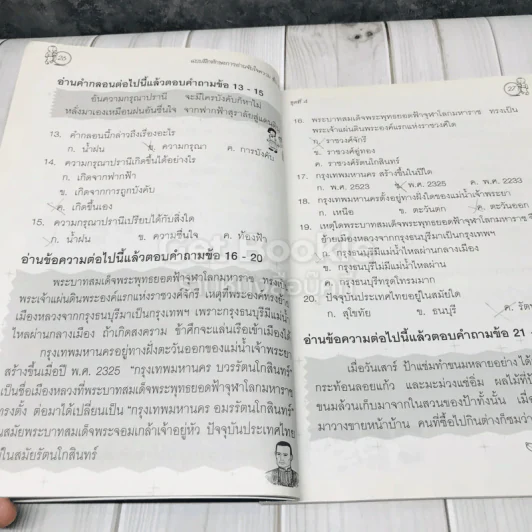 26
แบบฝึกทักษะการอ่านจับใจความ
อ่านคำกลอนต่อไปนี้แล้วตอบคำถามข้อ 13 - 15
อันความกรุณาปรานี จะมีใครบังคับก็หาไม่
หลั่งมาเองเหมือนฝนอันชื่นใจ จากฟากฟ้าสุราลัยสู่แดนดิน
13. คำกลอนนี้กล่าวถึงเรื่องอะไร
ก. น้ำฝน ข. ความกรุณา ค. การบังคับ
14. ความกรุณาปรานีเกิดขึ้นได้อย่างไร
ก. เกิดจากฟากฟ้า
ข. เกิดจากการถูกบังคับ
ค. เกิดขึ้นเอง
15. ความกรุณาปรานีเปรียบได้กับสิ่งใด
ก. น้ำฝน ข. ความชื่นใจ ค. ท้องฟ้า
อ่านข้อความต่อไปนี้แล้วตอบคำถามข้อ 16 - 20
พระบาทสมเด็จพระพุทธยอดฟ้าจุฬาโลกมหาราช ทรงเป็น
พระเจ้าแผ่นดินพระองค์แรกแห่งราชวงศ์จักรี เหตุที่พระองค์ทรงย้าย
เมืองหลวงจากกรุงธนบุรีมาเป็นกรุงเทพฯ เพราะกรุงธนบุรีมีแม่น้ำ
ไหลผ่านกลางเมือง ถ้าเกิดสงคราม ข้าศึกจะแล่นเรือเข้าเมืองได้
กรุงเทพมหานครอยู่ทางฝั่งตะวันออกของแม่น้ำเจ้าพระยา
สร้างขึ้นเมื่อปี พ.ศ. 2325 "กรุงเทพมหานคร บวรรัตนโกสินทร์"
เป็นชื่อเมืองหลวงที่พระบาทสมเด็จพระพุทธยอดฟ้าจุฬาโลกมหาราช
ทรงตั้ง ต่อมาได้เปลี่ยนเป็น "กรุงเทพมหานคร อมรรัตนโกสินทร์"
ในสมัยพระบาทสมเด็จพระจอมเกล้าเจ้าอยู่หัว ปัจจุบันประเทศไทย
อยู่ในสมัยรัตนโกสินทร์
ชุดที่ 4
27
16. พระบาทสมเด็จพระพุทธยอดฟ้าจุฬาโลกมหาราช ทรงเป็น
พระเจ้าแผ่นดินพระองค์แรกแห่งราชวงศ์ใด
ก. ราชวงศ์จักรี
ข. ราชวงศ์อู่ทอง
ค. ราชวงศ์รัตนโกสินทร์
17. กรุงเทพมหานคร สร้างขึ้นในปีใด
ก. พ.ศ. 2523 ข. พ.ศ. 2325 ค. พ.ศ. 2233
18. กรุงเทพมหานครตั้งอยู่ทางฝั่งใดของแม่น้ำเจ้าพระยา
ก. เหนือ ข. ตะวันตก ค. ตะวันออก
19. เหตุใดพระบาทสมเด็จพระพุทธยอดฟ้าจุฬาโลกมหาราช
ย้ายเมืองหลวงจากกรุงธนบุรีมาเป็นกรุงเทพฯ
ก. กรุงธนบุรีมีแม่น้ำไหลผ่านกลางเมือง
ข. กรุงธนบุรีไม่มีแม่น้ำไหลผ่าน
ค. กรุงธนบุรีทรุดโทรมมาก
20. ปัจจุบันประเทศไทยอยู่ในสมัยใด
ก. สุโขทัย ข. ธนบุรี ค. รัต
อ่านข้อความต่อไปนี้แล้วตอบคำถามข้อ 21 -
เมื่อวันเสาร์ ป้าแช่มทำขนมหลายอย่างได้
กระท้อนลอยแก้ว และมะม่วงแช่อิ่ม ผลไม้ที่
ขนมล้วนเก็บมาจากในสวนของป้าทั้งนั้น เมื่อ
มาวางขายหน้าบ้าน คนที่ซื้อไปกินต่างก็ชมว่า